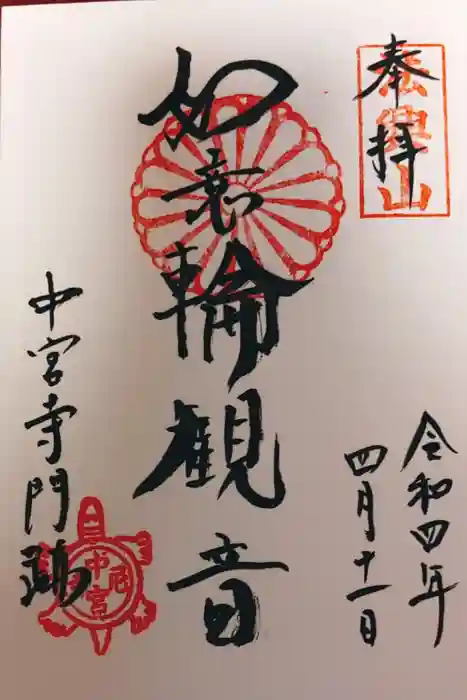 奉拝
法興山
令和四年
四月十一日
如意輪観音
中宮寺門跡